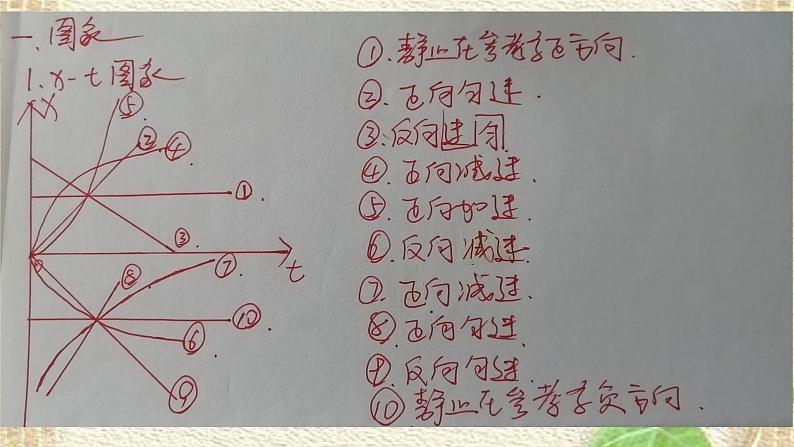 一.图象
1.x-t图象
x
⑤
②
④
①
③
t
⑦
⑧
⑩
⑥
⑨
①.静止在参考系正方向.
②.正向匀速.
③.反向速匀.
④.正向减速.
⑤.正向加速.
⑥.反向减速.
⑦.正向减速.
⑧.正向匀速.
⑨.反向匀速.
⑩静止在参考系负方向.